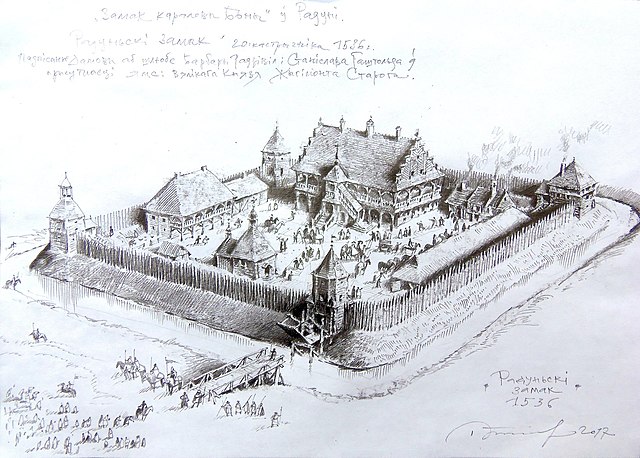 "Замак каралевы Боны" ў Радуні.
"Радуньскі замак" 20 кастрычніка 1536 г.
аб шлюбе Барбары Радзівіл і Станіслава Гаштольда ў
прысутнасці яго вялікага Князя Жыгімонта Старога.
"Радуньскі
замак"
1536
2017